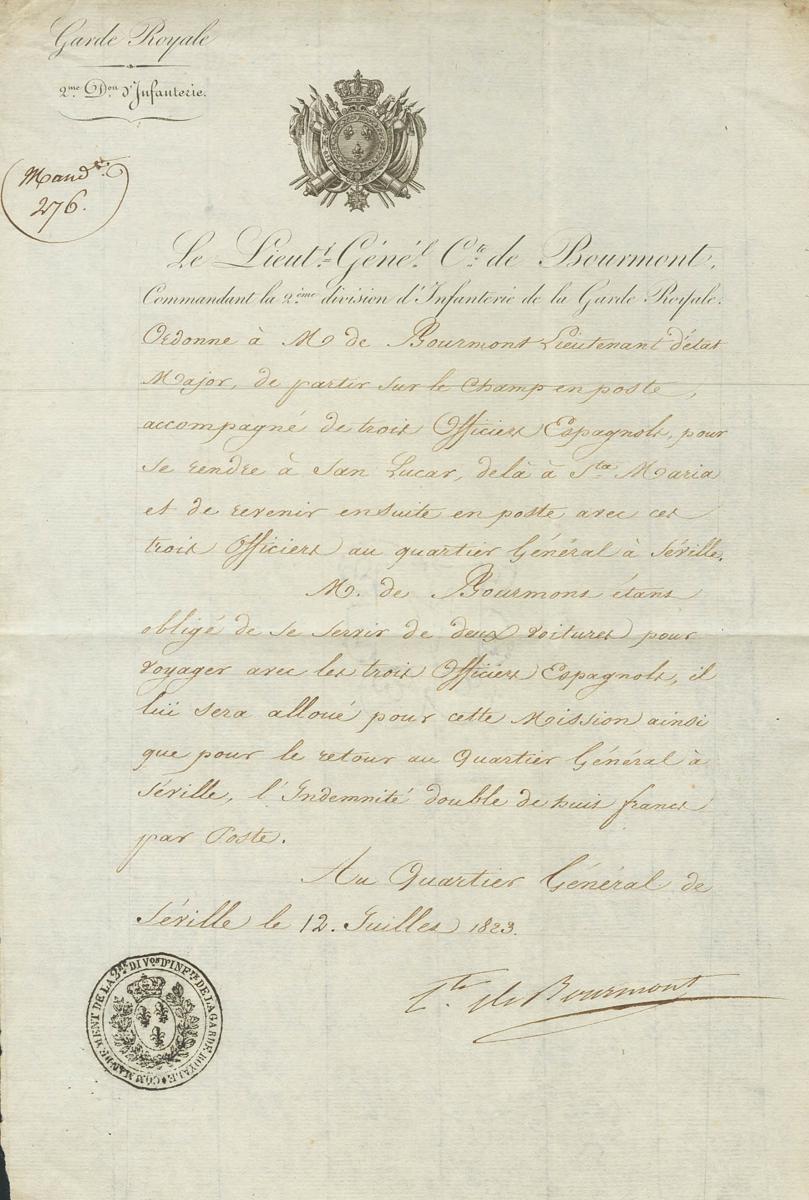 Garde Royale
2me Don d'Infanterie.
Mandt
276.
Le Lieut.t Géné.l C.te de Bourmont,
Commandant la 2ème division d'Infanterie de la Garde Royale.
Ordonne à M. de Bourmont Lieutenant d'état
Major, de partir sur le champ en poste,
accompagné de trois Officiers Espagnols, pour
se rendre à San Lucar, delà à Sta Maria
et de revenir ensuite en poste avec ces
trois Officiers au quartier Général à Séville.
M. de Bourmont étant
obligé de se servir de deux voitures pour
voyager avec les trois Officiers Espagnols, il
lui sera alloué pour cette Mission ainsi
que pour le retour au Quartier Général à
Séville, l'Indemnité double de huit francs
par Poste.
Au Quartier Général de
Séville le 12. Juillet 1823.
Cte de Bourmont
COMMANDEMENT DE LA 2ME DIVON D'INFIE DE LA GARDE ROYALE